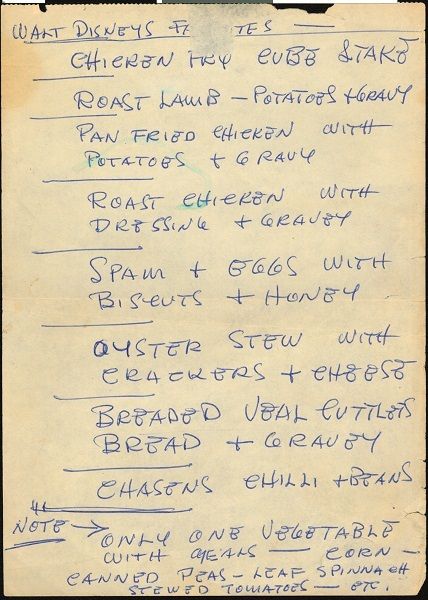 WALT DISNEYS
CHICKEN FRY CUBE STAKE
ROAST LAMB - POTATOES + GRAVY
PAN FRIED CHICKEN WITH
POTATOES + GRAVY
ROAST CHICKEN WITH
DRESSING + GRAVEY
SPAM + EGGS WITH
BISCUTS + HONEY
OYSTER STEW WITH
CRACKERS + CHEESE
BREADED VEAL CUTTLETS
BREAD + GRAVEY
CHASENS CHILLI + BEANS
NOTE → ONLY ONE VEGETABLE
WITH MEALS — CORN -
CANNED PEAS - LEAF SPINNACH
STEWED TOMATOES - ETC.